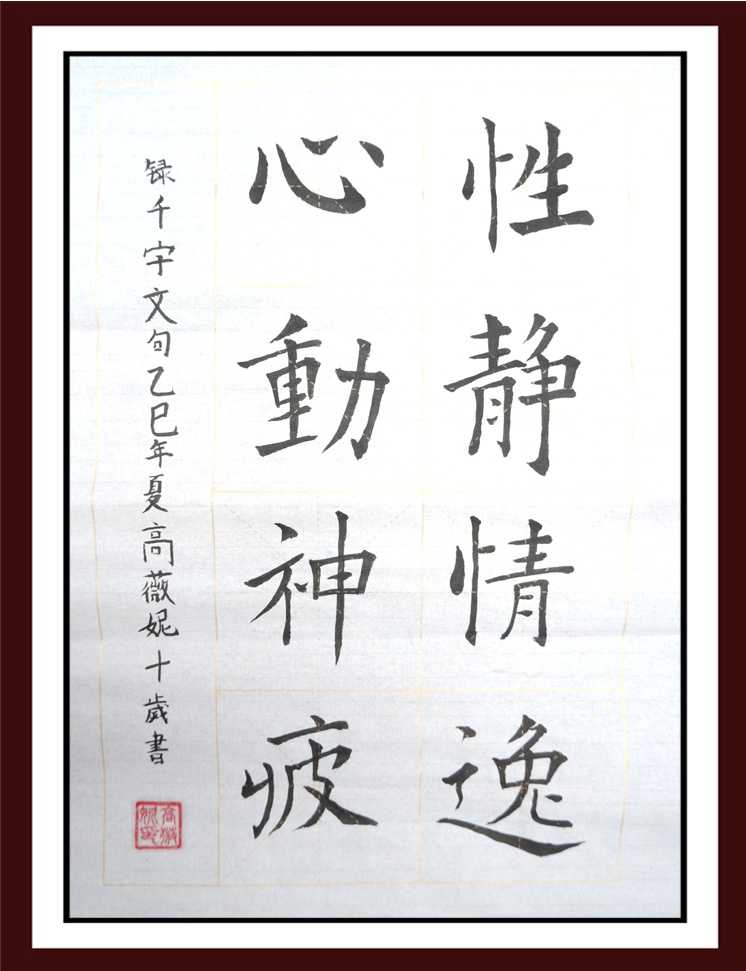 性静情逸
心動神疲
録千字文句乙巳年夏高薇妮十歲書
高薇妮印